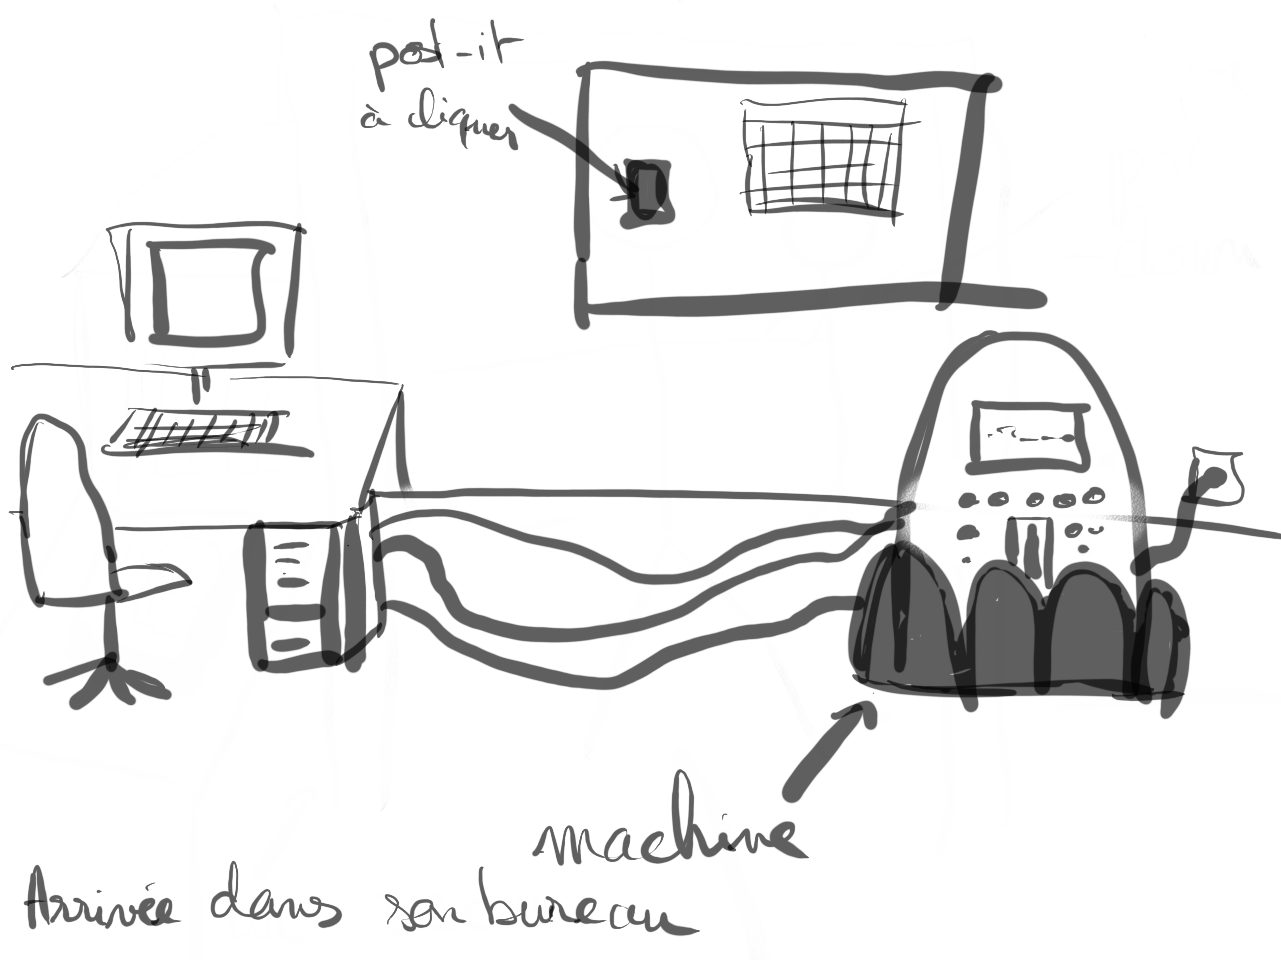 post-it
à cliquer
machine
Arrivée dans son bureau